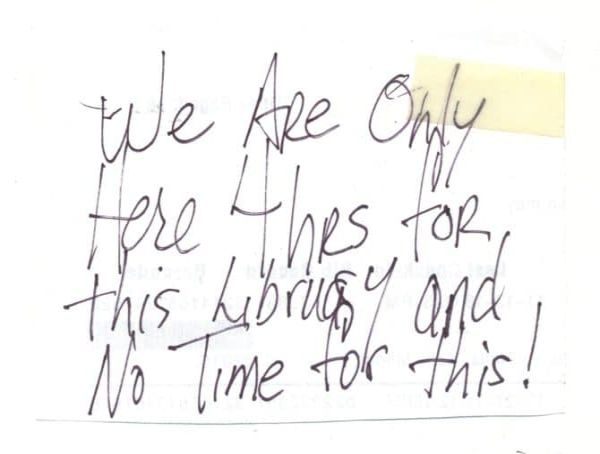 We Are Only
Here 4 hrs for
this Library and
No Time for this!